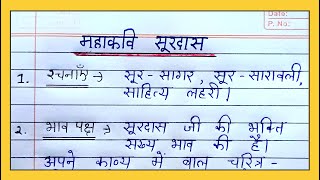 Date:
P. No:
महाकवि सूरदास
1. रचनाएँ → सूर-सागर, सूर-सारावली,
साहित्य लहरी।
2. भाव पक्ष → सूरदास जी की भक्ति
सख्य भाव की है।
अपने काव्य में बाल चरित्र-